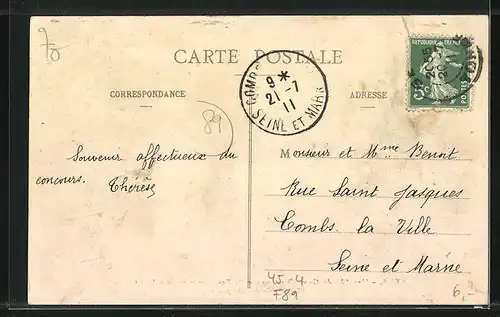 70
CARTE POSTALE
REPUBLIQUE FRANÇAISE
5c
POSTES
COMBS
9*
21-7
11
SEINE ET MARNE
CORRESPONDANCE
ADRESSE
89
Souvenir affectueux du
concours. Thérèse
Monsieur et Mme Benoit
Rue Saint Jasques
Combs. la Ville
Seine et Marne
45-4
F89
6,-